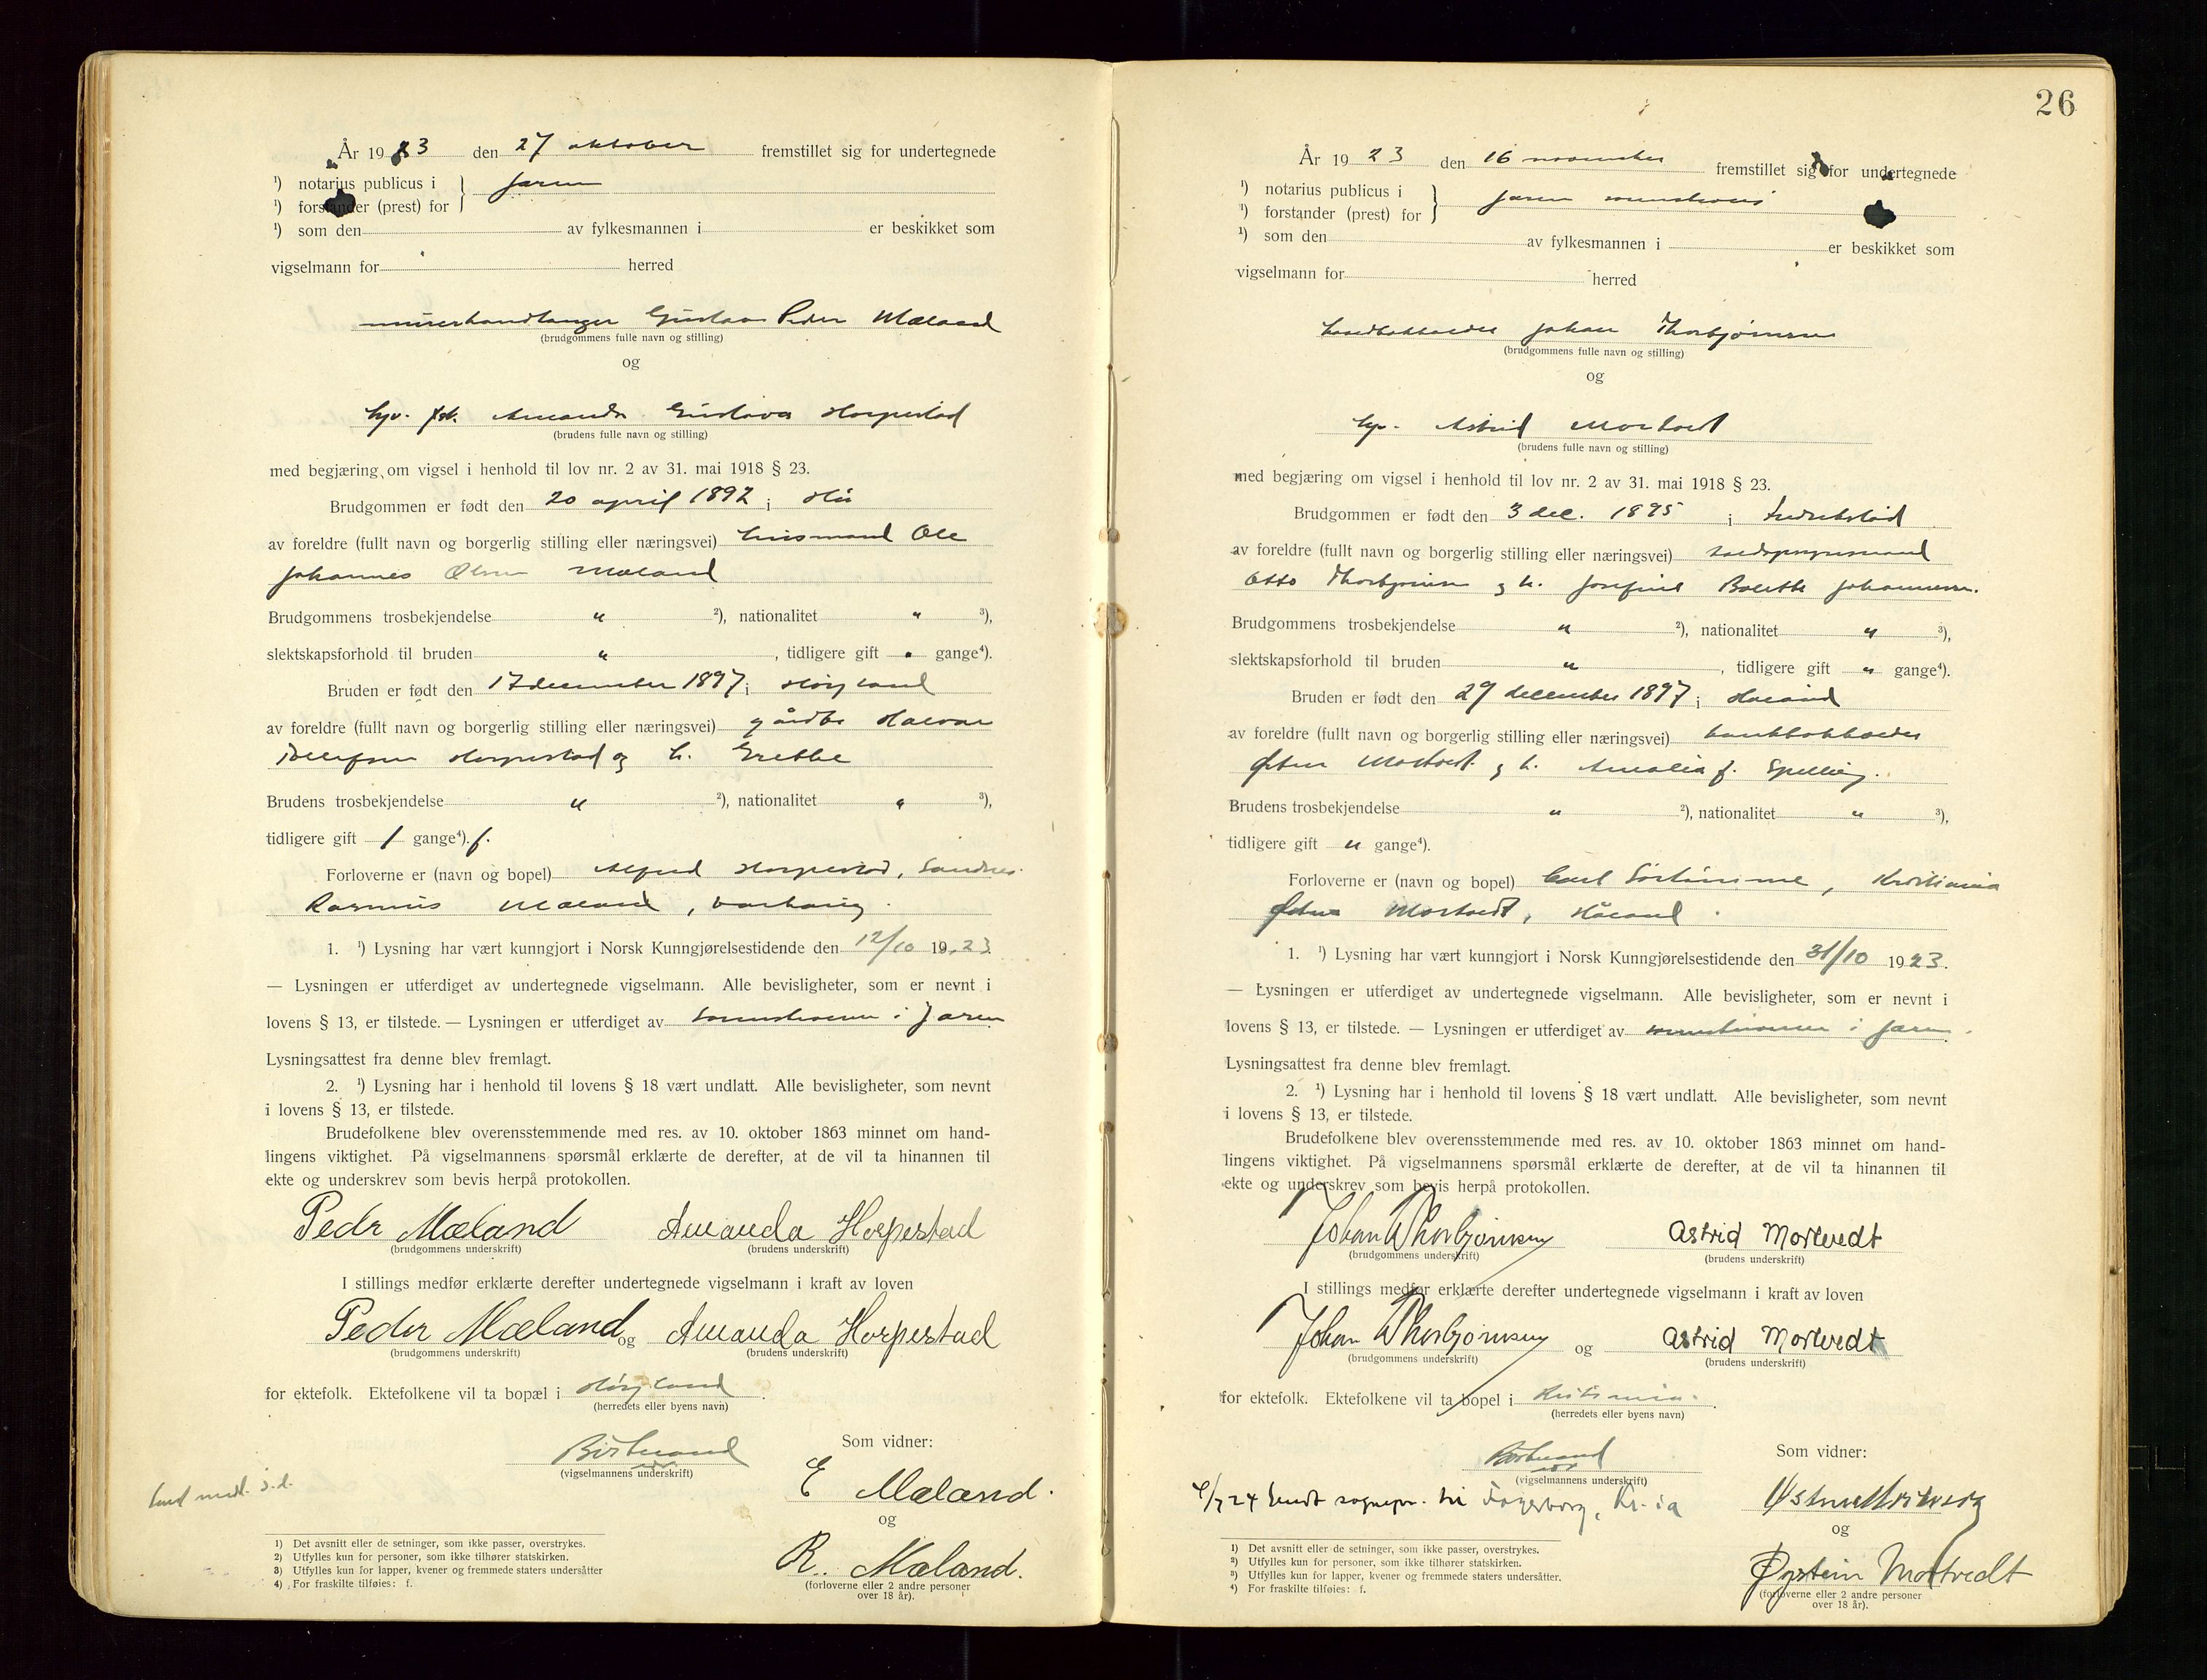 År 1923 den 27 oktober fremstillet sig for undertegnede
¹) notarius publicus i } Jæren
¹) forstander (prest) for
¹) som den av fylkesmannen i er beskikket som
vigselmann for herred
murerhandlanger Gustav Peder Mæland
(brudgommens fulle navn og stilling)
og
hjv. fsk. Amanda Gustava Horpestad
(brudens fulle navn og stilling)
med begjæring om vigsel i henhold til lov nr. 2 av 31. mai 1918 § 23.
Brudgommen er født den 20 april 1892 i Hå
av foreldre (fullt navn og borgerlig stilling eller næringsvei) husmand Ole
Johannes Olsen Mæland
Brudgommens trosbekjendelse " ²), nationalitet " ³),
slektskapsforhold til bruden " , tidligere gift " gange⁴).
Bruden er født den 17 december 1897 i Høyland
av foreldre (fullt navn og borgerlig stilling eller næringsvei) gårdbr Halvar
Tollefsen Horpestad og h. Grethe
Brudens trosbekjendelse " ²), nationalitet " ³),
tidligere gift 1 gange⁴). f.
Forloverne er (navn og bopel) Alfred Horpestad, Sandnes
Rasmus Mæland, Varhaug.
1. ¹) Lysning har vært kunngjort i Norsk Kunngjørelsestidende den 12/10 1923.
— Lysningen er utferdiget av undertegnede vigselmann. Alle bevisligheter, som er nevnt i
lovens § 13, er tilstede. — Lysningen er utferdiget av sorenskriveren i Jæren
Lysningsattest fra denne blev fremlagt.
2. ¹) Lysning har i henhold til lovens § 18 vært undlatt. Alle bevisligheter, som nevnt
i lovens § 13, er tilstede.
Brudefolkene blev overensstemmende med res. av 10. oktober 1863 minnet om hand-
lingens viktighet. På vigselmannens spørsmål erklærte de derefter, at de vil ta hinannen til
ekte og underskrev som bevis herpå protokollen.
Pedr Mæland Amanda Horpestad
(brudgommens underskrift) (brudens underskrift)
I stillings medfør erklærte derefter undertegnede vigselmann i kraft av loven
Peder Mæland og Amanda Horpestad
(brudgommens underskrift) (brudens underskrift)
for ektefolk. Ektefolkene vil ta bopæl i Høyland.
(herredets eller byens navn)
Som vidner:
(vigselmannens underskrift)
E Mæland.
og
R. Mæland.
(forloverne eller 2 andre personer
over 18 år).
1) Det avsnitt eller de setninger, som ikke passer, overstrykes.
2) Utfylles kun for personer, som ikke tilhører statskirken.
3) Utfylles kun for lapper, kvener og fremmede staters undersåtter
4) For fraskilte tilføies: f.
26
År 1923 den 16 november fremstillet sig for undertegnede
¹) notarius publicus i } Jæren
¹) forstander (prest) for
¹) som den av fylkesmannen i er beskikket som
vigselmann for herred
Johan Thorbjørnsen
(brudgommens fulle navn og stilling)
og
hjv. Astrid Mortvedt
(brudens fulle navn og stilling)
med begjæring om vigsel i henhold til lov nr. 2 av 31. mai 1918 § 23.
Brudgommen er født den 3 dec. 1895 i Fredrikstad
av foreldre (fullt navn og borgerlig stilling eller næringsvei)
Otto Thorbjørnsen og h. Josefine Bolette Johannessen.
Brudgommens trosbekjendelse " ²), nationalitet " ³),
slektskapsforhold til bruden " , tidligere gift " gange⁴).
Bruden er født den 29 december 1897 i Håland
av foreldre (fullt navn og borgerlig stilling eller næringsvei) bankbokholder
Østen Mortvedt og h. Amalia f. Spelling.
Brudens trosbekjendelse " ²), nationalitet " ³),
tidligere gift " gange⁴).
Forloverne er (navn og bopel) Carl, Kristiania
Østen Mortvedt, Håland.
1. ¹) Lysning har vært kunngjort i Norsk Kunngjørelsestidende den 31/10 1923.
— Lysningen er utferdiget av undertegnede vigselmann. Alle bevisligheter, som er nevnt i
lovens § 13, er tilstede. — Lysningen er utferdiget av sorenskriveren i Jæren.
Lysningsattest fra denne blev fremlagt.
2. ¹) Lysning har i henhold til lovens § 18 vært undlatt. Alle bevisligheter, som nevnt
i lovens § 13, er tilstede.
Brudefolkene blev overensstemmende med res. av 10. oktober 1863 minnet om hand-
lingens viktighet. På vigselmannens spørsmål erklærte de derefter, at de vil ta hinannen til
ekte og underskrev som bevis herpå protokollen.
Johan Thorbjørnsen Astrid Mortvedt
(brudgommens underskrift) (brudens underskrift)
I stillings medfør erklærte derefter undertegnede vigselmann i kraft av loven
Johan Thorbjørnsen og Astrid Mortvedt
(brudgommens underskrift) (brudens underskrift)
for ektefolk. Ektefolkene vil ta bopel i Kristiania.
(herredets eller byens navn)
Som vidner:
(vigselmannens underskrift)
24 sendt sognepr. til Fagerborg, Kr.ia
og
Øystein Mortvedt
(forloverne eller 2 andre personer
over 18 år).
1) Det avsnitt eller de setninger, som ikke passer, overstrykes.
2) Utfylles kun for personer, som ikke tilhører statskirken.
3) Utfylles kun for lapper, kvener og fremmede staters undersåtter.
4) For fraskilte tilføies: f.